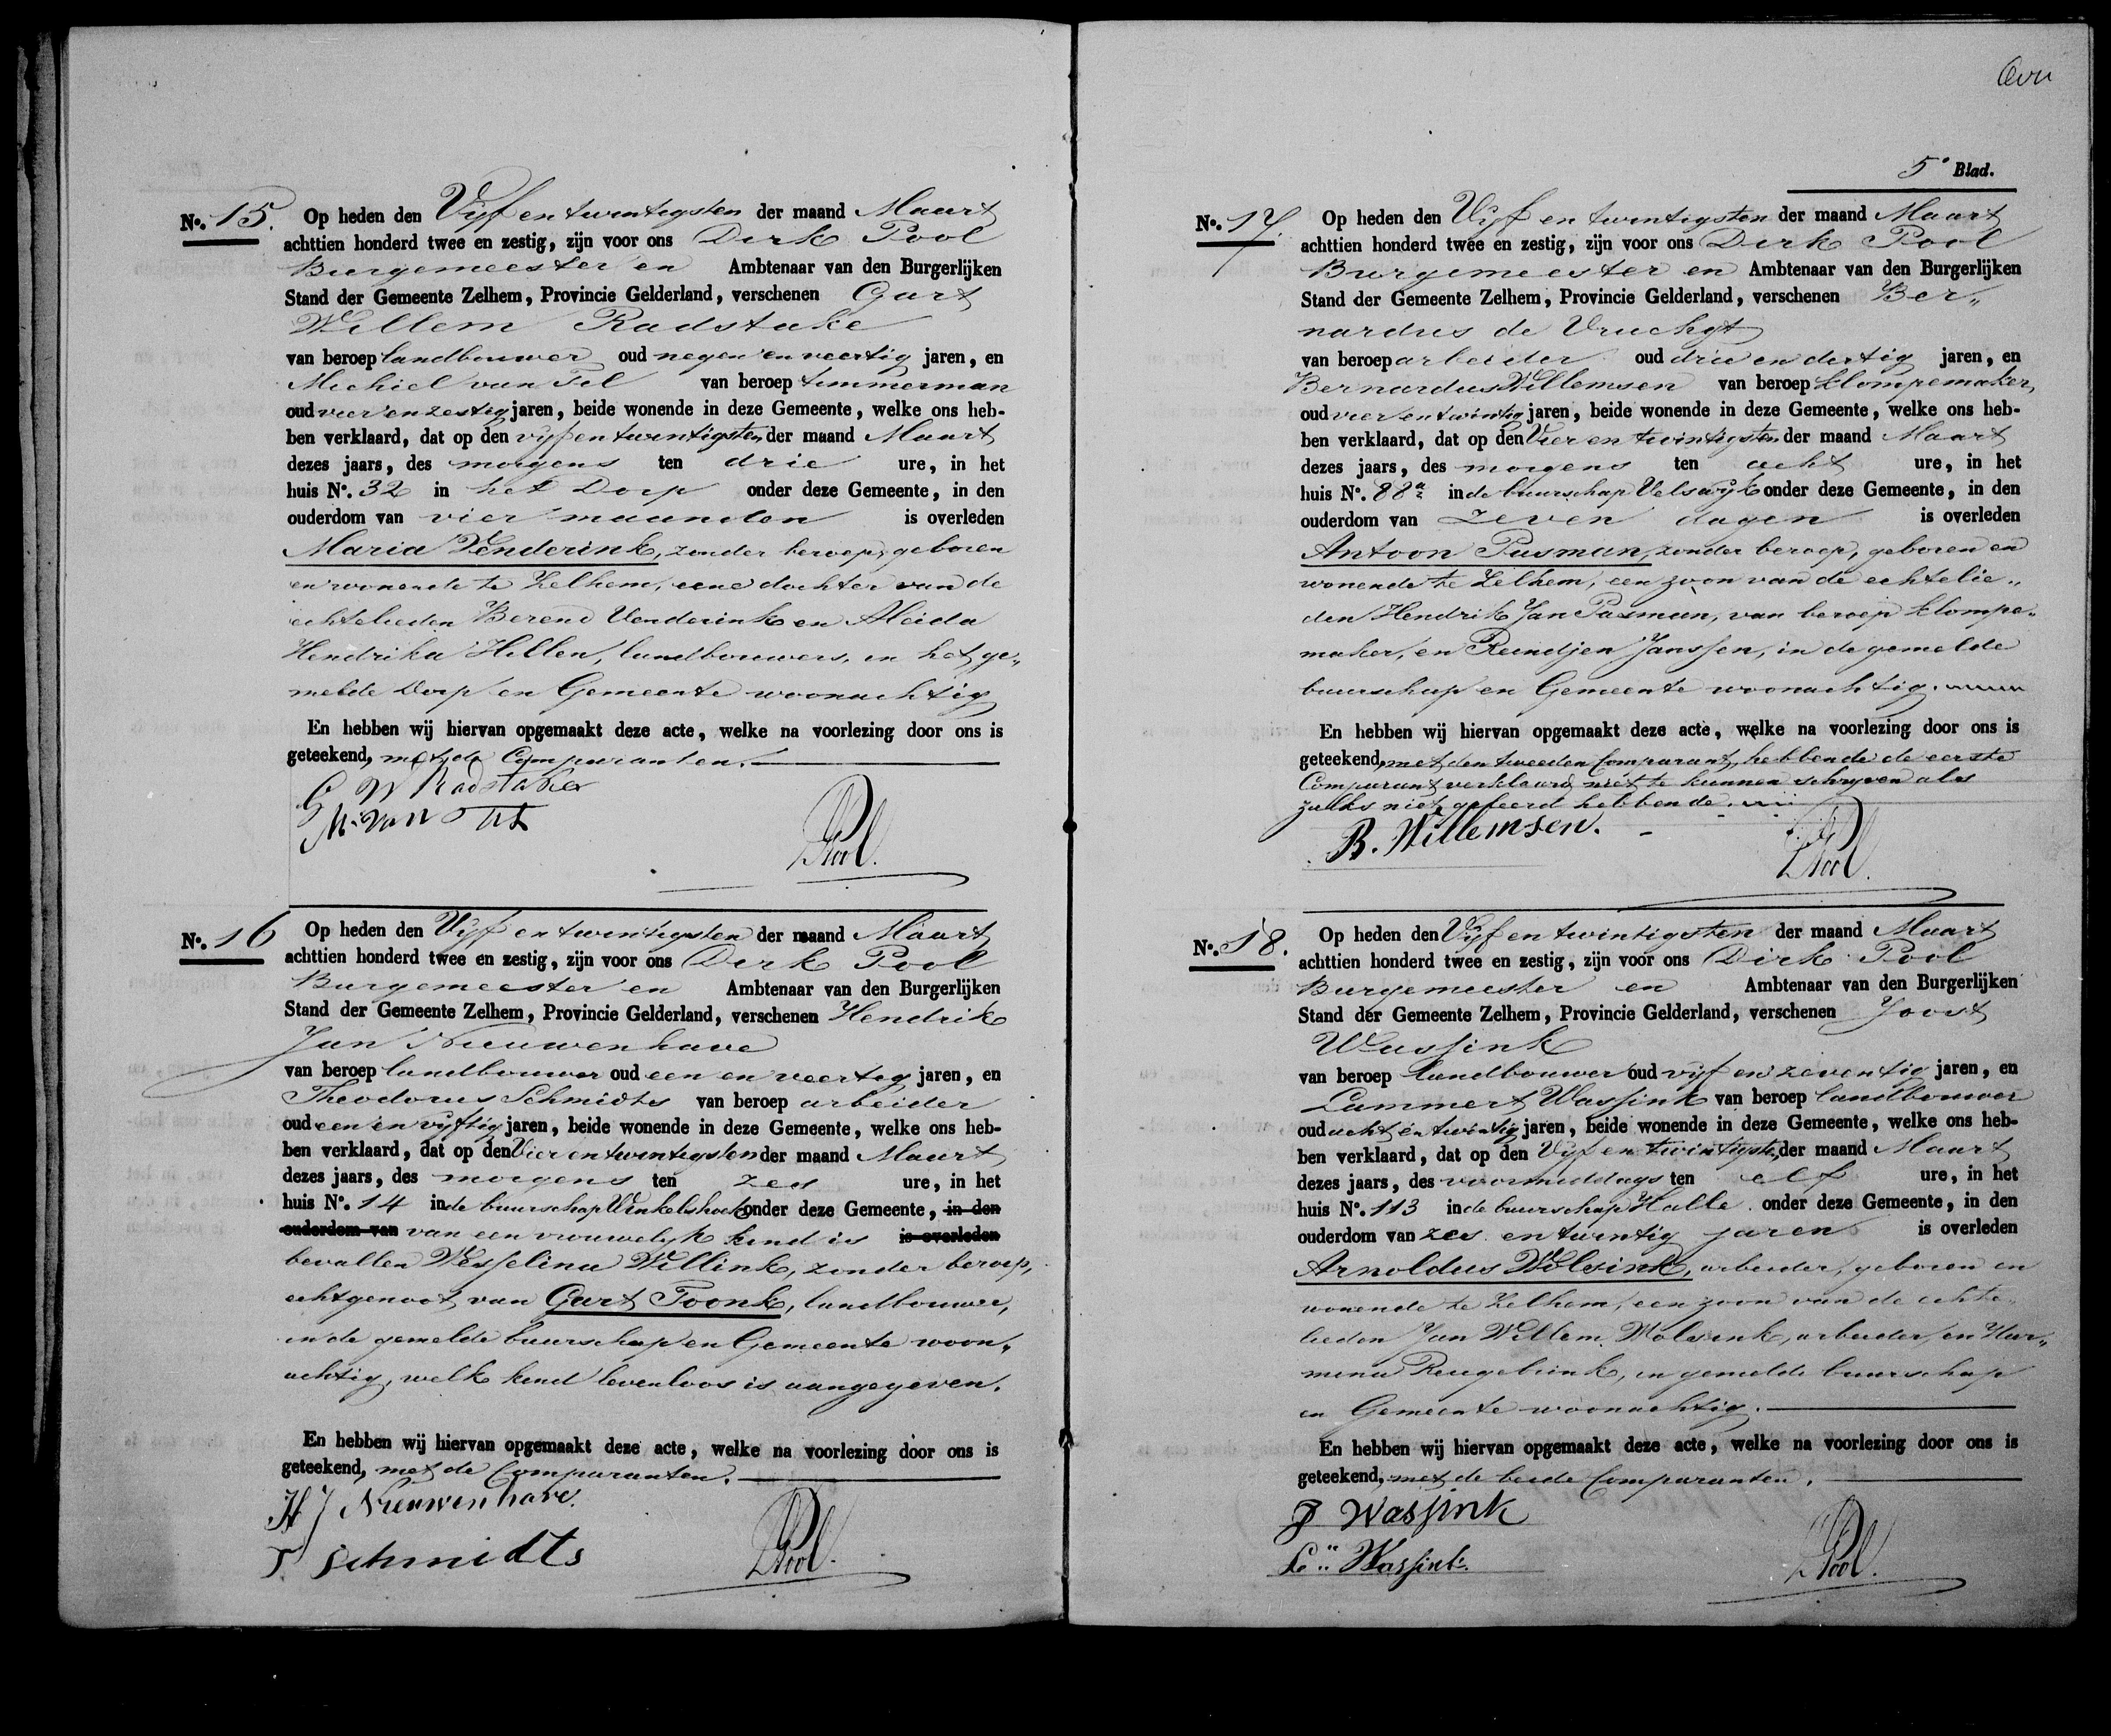 No. 15. Op heden den Vijf en twintigsten der maand Maart
achttien honderd twee en zestig, zijn voor ons Derk Pool
Burgemeester en Ambtenaar van den Burgerlijken
Stand der Gemeente Zelhem, Provincie Gelderland, verschenen Gart
Willem Radstake
van beroep landbouwer oud negen en veertig jaren, en
Mechiel van Tel van beroep timmerman
oud vier en zestig jaren, beide wonende in deze Gemeente, welke ons heb-
ben verklaard, dat op den vijf en twintigsten der maand Maart
dezes jaars, des morgens ten drie ure, in het
huis No. 32 in het Dorp onder deze Gemeente, in den
ouderdom van vier maanden is overleden
Maria Venderink, zonder beroep, geboren
en wonende te Zelhem, eene dochter van de
echtelieden Berend Venderink en Aleida
Hendrika Hillen, landbouwers, in het ge„
melde Dorp en Gemeente woonachtig
En hebben wij hiervan opgemaakt deze acte, welke na voorlezing door ons is
geteekend, met de Comparanten.
G W Radstake
M. van Tel
DPool.
No. 16 Op heden den Vijf en twintigsten der maand Maart
achttien honderd twee en zestig, zijn voor ons Derk Pool
Burgemeester en Ambtenaar van den Burgerlijken
Stand der Gemeente Zelhem, Provincie Gelderland, verschenen Hendrik
Jan Nieuwenhave
van beroep landbouwer oud een en veertig jaren, en
Theodorus Schmidts van beroep arbeider
oud een en vijftig jaren, beide wonende in deze Gemeente, welke ons heb-
ben verklaard, dat op den Vier en twintigsten der maand Maart
dezes jaars, des morgens ten zes ure, in het
huis No. 14 in de buurschap Winkelshoek onder deze Gemeente, in den
ouderdom van van een vrouwelijk kind is is overleden
bevallen Wesselina Willink, zonder beroep,
echtgenoot van Gart Toonk, landbouwer,
in de gemelde buurschap en Gemeente woon„
achtig, welk kind levenloos is aangegeven.
En hebben wij hiervan opgemaakt deze acte, welke na voorlezing door ons is
geteekend, met de Comparanten.
H J Nieuwenhave.
T. Schmidts
DPool.
5e Blad.
No. 17. Op heden den Vijf en twintigsten der maand Maart
achttien honderd twee en zestig, zijn voor ons Derk Pool
Burgemeester en Ambtenaar van den Burgerlijken
Stand der Gemeente Zelhem, Provincie Gelderland, verschenen Ber„
nardus de Vruchgt
van beroep arbeider oud drie en dertig jaren, en
Bernardus Willemsen van beroep klompemaker,
oud vier en twintig jaren, beide wonende in deze Gemeente, welke ons heb-
ben verklaard, dat op den Vier en twintigsten der maand Maart
dezes jaars, des morgens ten acht ure, in het
huis No. 88a in de buurschap Velswijk onder deze Gemeente, in den
ouderdom van zeven dagen is overleden
Antoon Pasman, zonder beroep, geboren en
wonende te Zelhem, een zoon van de echtelie„
den Hendrik Jan Pasman, van beroep klompe„
maker, en Reindjen Janssen, in de gemelde
buurschap en Gemeente woonachtig.
En hebben wij hiervan opgemaakt deze acte, welke na voorlezing door ons is
geteekend, met den tweeden Comparant, hebbende de eerste
Comparant verklaard niet te kunnen schrijven als
zulks niet geleerd hebbende.
B. Willemsen.
DPool.
No. 18. Op heden den Vijf en twintigsten der maand Maart
achttien honderd twee en zestig, zijn voor ons Dirk Pool
Burgemeester en Ambtenaar van den Burgerlijken
Stand der Gemeente Zelhem, Provincie Gelderland, verschenen Joost
Wassink
van beroep landbouwer oud vijf en zeventig jaren, en
Lammert Wassink van beroep landbouwer
oud acht en twintig jaren, beide wonende in deze Gemeente, welke ons heb-
ben verklaard, dat op den Vijf en twintigsten der maand Maart
dezes jaars, des voormiddags ten elf ure, in het
huis No. 113 in de buurschap Halle onder deze Gemeente, in den
ouderdom van zes en twintig jaren is overleden
Arnoldus Wolsink, arbeider, geboren en
wonende te Zelhem, een zoon van de echte
lieden Jan Willem Wolsink, arbeider, en Har„
mina Reugebrink, in gemelde buurschap
en Gemeente woonachtig.
En hebben wij hiervan opgemaakt deze acte, welke na voorlezing door ons is
geteekend, met de beide Comparanten.
J Wassink
L Wassink
DPool.